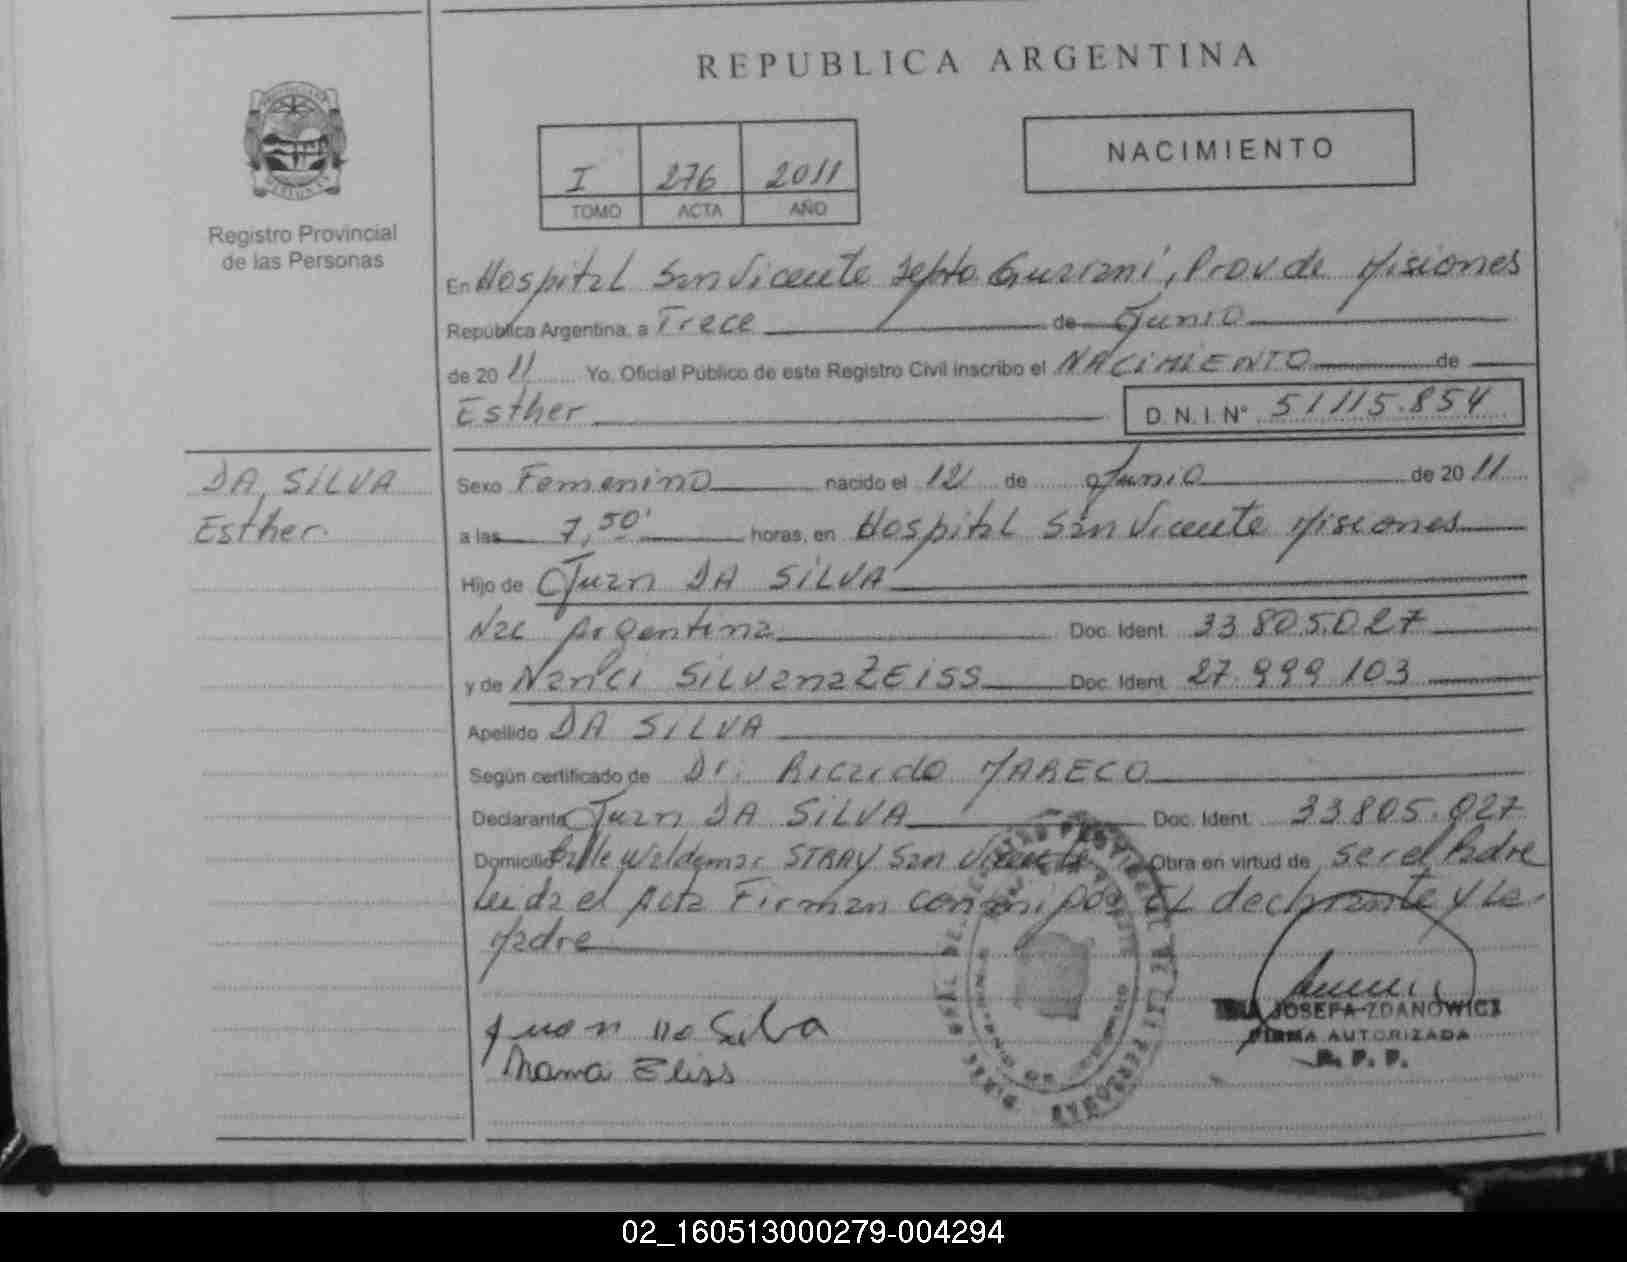 REPUBLICA ARGENTINA
NACIMIENTO
I 276 2011
TOMO ACTA AÑO
Registro Provincial
de las Personas
En Hospital San Vicente Depto Guarani, Prov de Misiones
República Argentina, a Trece de Junio
de 2011 Yo, Oficial Público de este Registro Civil inscribo el NACIMIENTO de
Esther D.N.I. N° 51115.854
DA SILVA
Esther.
Sexo Femenino nacido el 12 de Junio de 2011
a las 7,50' horas, en Hospital San Vicente Misiones
Hijo de Juan DA SILVA
Nac Argentina Doc. Ident. 33.805.027
y de Nanci SILVana ZEISS Doc. Ident. 27.999.103
Apellido DA SILVA
Según certificado de Dr. Ricardo MARECO
Declarante Juan DA SILVA Doc. Ident. 33.805.027
Domicilio Calle Waldemar STRAY San Vicente Obra en virtud de ser el Padre
Leida el Acta Firman conmigo EL declarante y La
Madre
Juan Da Silva
JOSEFA ZDANOWICZ
FIRMA AUTORIZADA
R. P. P.
02_160513000279-004294